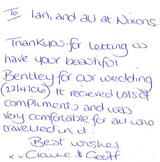 To Ian, and all at Nixons.
Thankyou for letting us
have your beautiful
Bentley for our wedding
It recieved lots of
compliments and was
very comfortable for all who
travelled in it.
Best wishes
Claire & Geoff